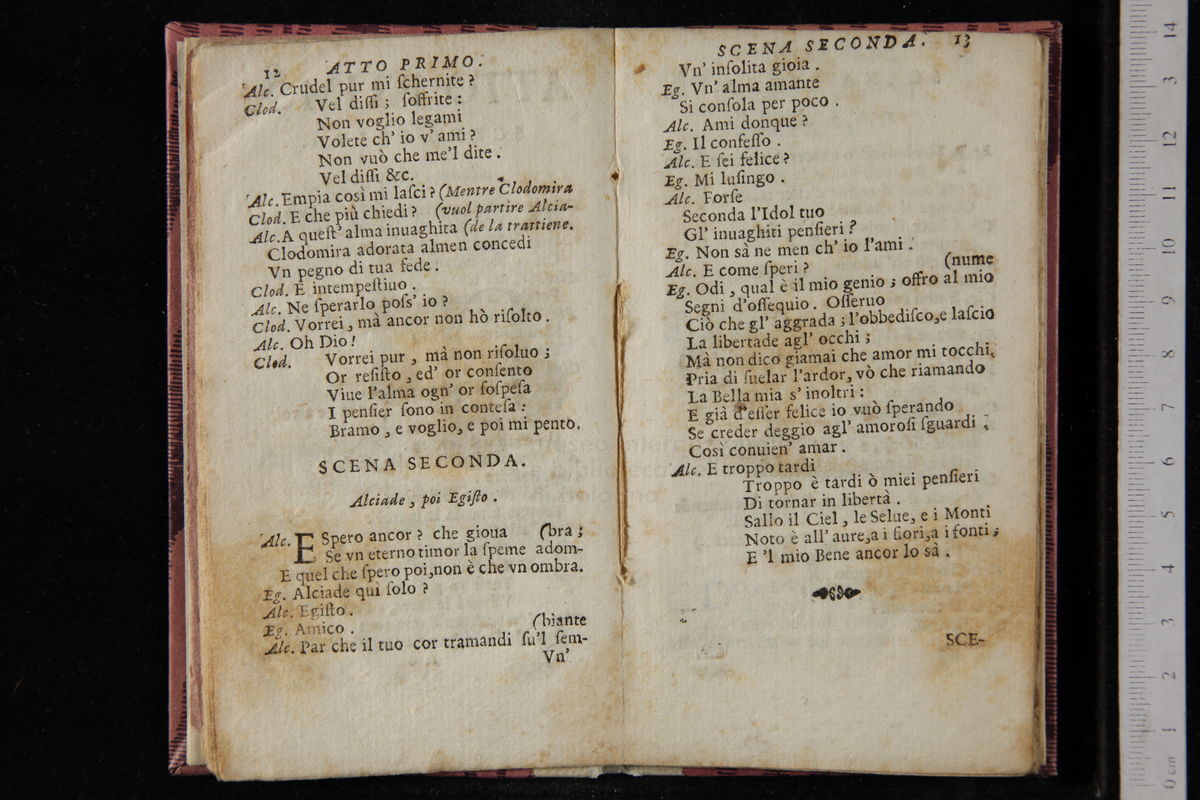 12 ATTO PRIMO.
Alc. Crudel pur mi ſchernite?
Clod. Vel diſſi; ſoffrite:
Non voglio legami
Volete ch' io v' ami?
Non vuò che me'l dite.
Vel diſſi &c.
Alc. Empia così mi laſci? (Mentre Clodomira
Clod. E che più chiedi? (vuol partire Alcia-
Alc. A queſt' alma inuaghita (de la trattiene.
Clodomira adorata almen concedi
Vn pegno di tua fede.
Clod. E intempeſtiuo.
Alc. Ne ſperarlo poſs' io?
Clod. Vorrei, mà ancor non hò riſolto.
Alc. Oh Dio!
Clod. Vorrei pur, mà non riſoluo;
Or reſiſto, ed' or conſento
Viue l'alma ogn' or ſoſpeſa
I penſier ſono in conteſa:
Bramo, e voglio, e poi mi pento.
SCENA SECONDA.
Alciade, poi Egiſto.
Alc. ESpero ancor? che gioua (bra;
Se vn eterno timor la ſpeme adom-
E quel che ſpero poi, non è che vn ombra.
Eg. Alciade quì ſolo?
Alc. Egiſto.
Eg. Amico. (biante
Alc. Par che il tuo cor tramandi ſu'l ſem-
Vn'
SCENA SECONDA. 13
Vn' inſolita gioia.
Eg. Vn' alma amante
Si conſola per poco.
Alc. Ami donque?
Eg. Il confeſſo.
Alc. E ſei felice?
Eg. Mi luſingo.
Alc. Forſe
Seconda l'Idol tuo
Gl' inuaghiti penſieri?
Eg. Non sà ne men ch' io l'ami.
Alc. E come ſperi? (nume
Eg. Odi, qual è il mio genio; offro al mio
Segni d'oſſequio. Oſſeruo
Ciò che gl' aggrada; l'obbediſco, e laſcio
La libertade agl' occhi;
Mà non dico giamai che amor mi tocchi.
Pria di ſuelar l'ardor, vò che riamando
La Bella mia s' inoltri:
E già d'eſſer felice io vuò ſperando
Se creder deggio agl' amoroſi ſguardi;
Così conuien' amar.
Alc. E troppo tardi
Troppo è tardi ò miei penſieri
Di tornar in libertà.
Sallo il Ciel, le Selue, e i Monti
Noto è all' aure, a i fiori, a i fonti;
E 'l mio Bene ancor lo sà.
SCE-
14
13
12
11
10
9
8
7
6
5
4
3
2
1
0 cm